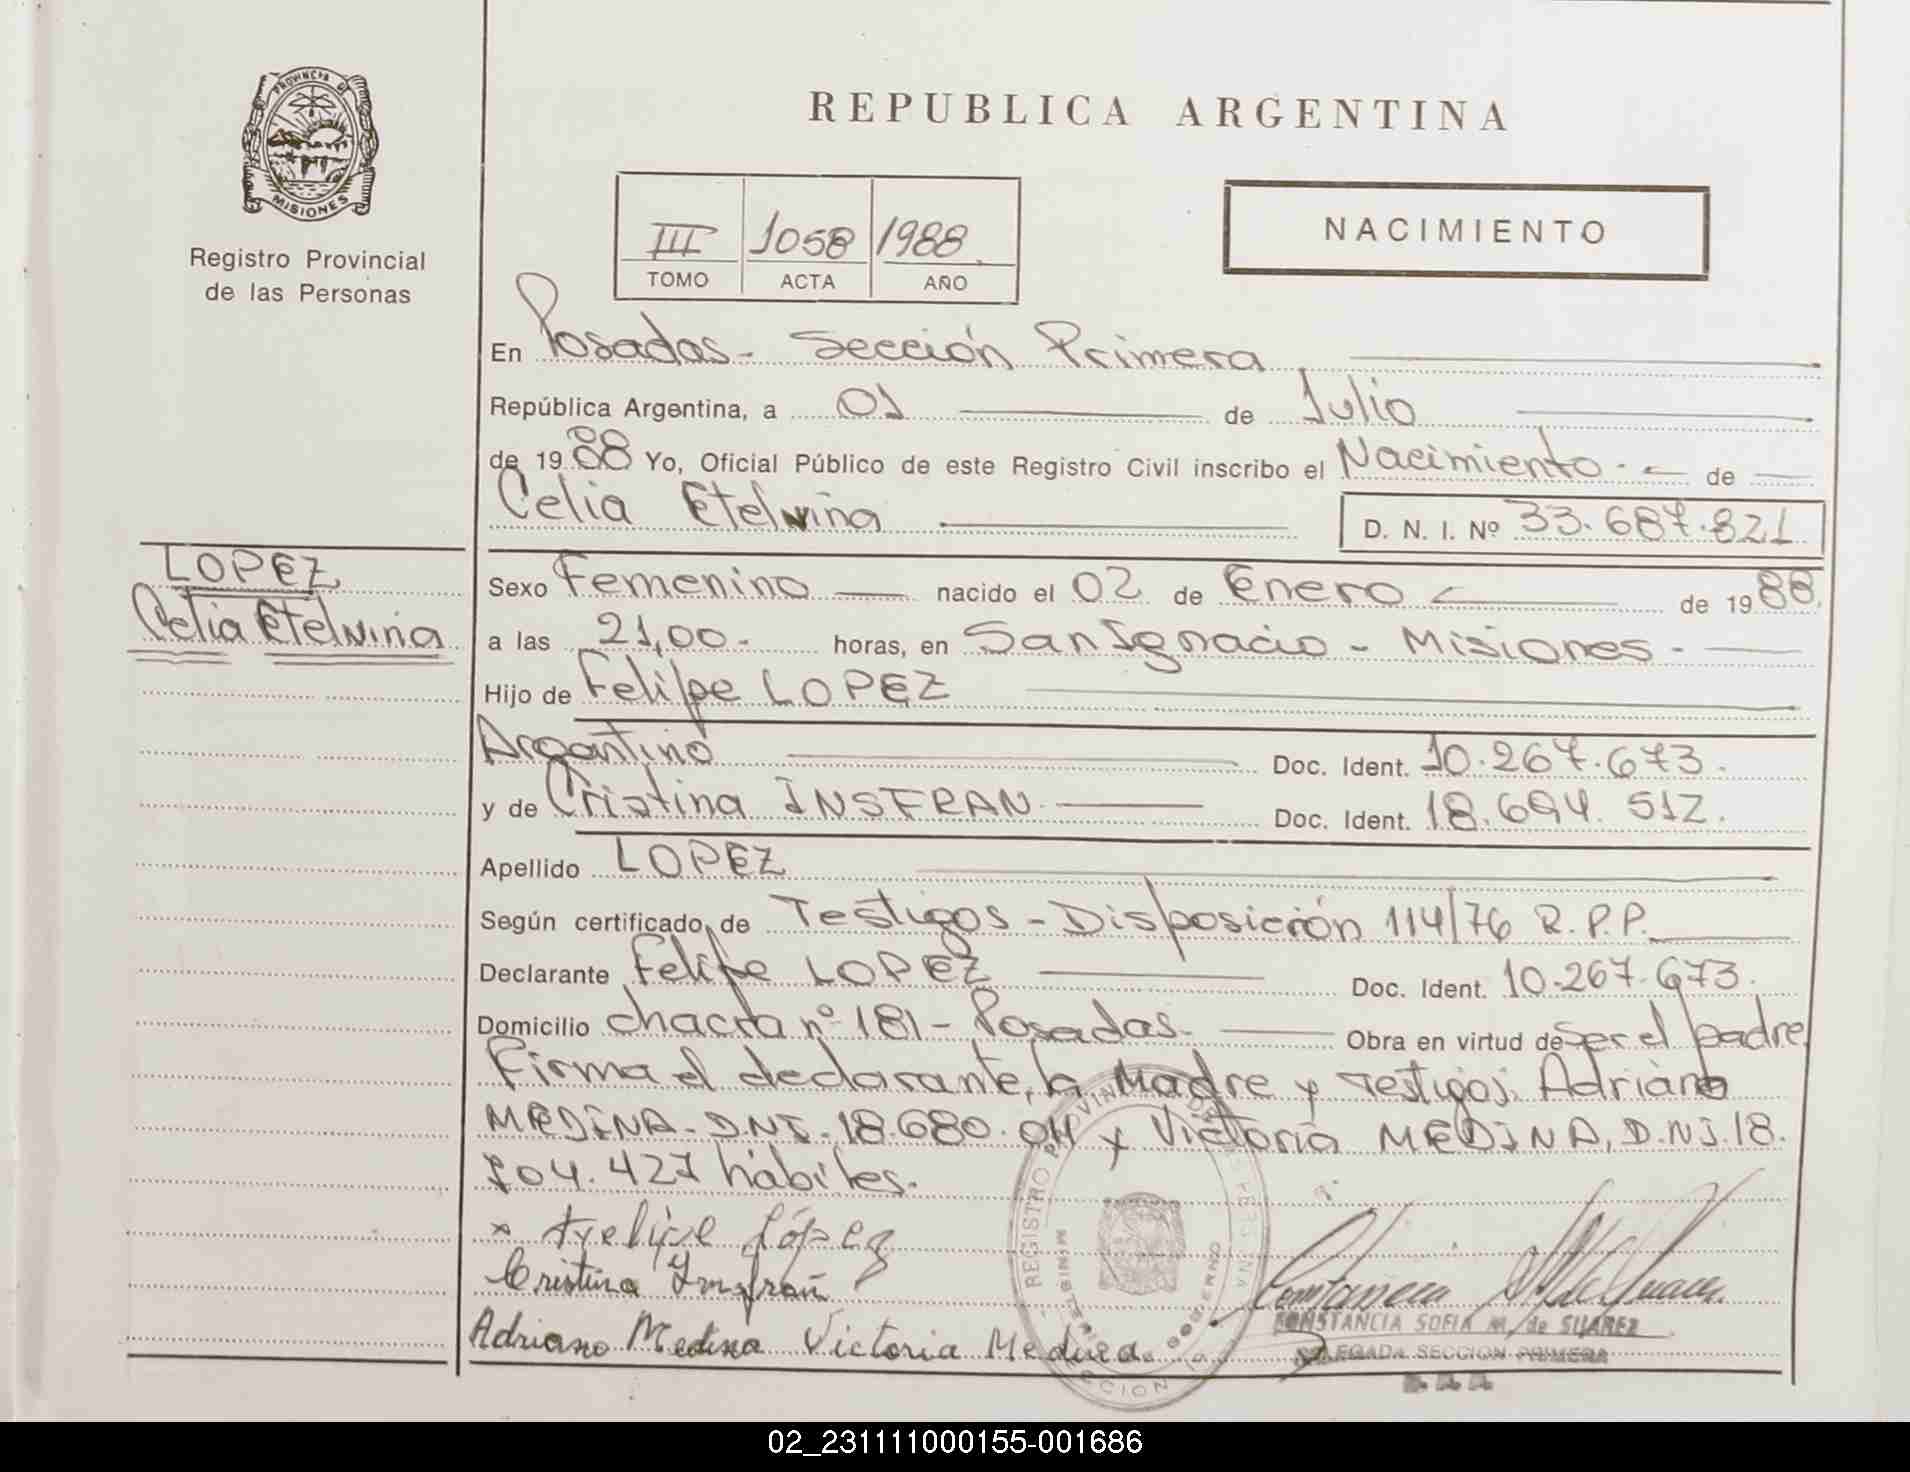 PROVINCIA DE
MISIONES
Registro Provincial
de las Personas
REPUBLICA ARGENTINA
III 1058 1988
TOMO ACTA AÑO
NACIMIENTO
En Posadas - Sección Primera
República Argentina, a 01 de Julio
de 1988 Yo, Oficial Público de este Registro Civil inscribo el Nacimiento - de
Celia Etelvina D. N. I. Nº 33.687.821
LOPEZ
Celia Etelvina
Sexo Femenino nacido el 02 de Enero de 1988.
a las 21,00- horas, en San Ignacio - Misiones -
Hijo de Felipe LOPEZ
Argentino Doc. Ident. 10.267.673.
y de Cristina INSFRAN Doc. Ident. 18.694.512.
Apellido LOPEZ
Según certificado de Testigos - Disposición 114/76 R.P.P.
Declarante Felipe LOPEZ Doc. Ident. 10.267.673.
Domicilio chacra nº 181 - Posadas. Obra en virtud de ser el padre
Firma el declarante, la Madre y Testigos: Adriano
MEDINA - D.N.I. 18.680.011 y Victoria MEDINA, D.N.I. 18.
704.427 hábiles.
x Felipe López
Cristina Insfrán
Adriano Medina Victoria Medina
REGISTRO PROVINCIAL DE LAS PERSONAS
MINISTERIO GOBIERNO
SECCION 1a
CONSTANCIA SOFIA M. de SUAREZ
DELEGADA SECCION PRIMERA
02_231111000155-001686